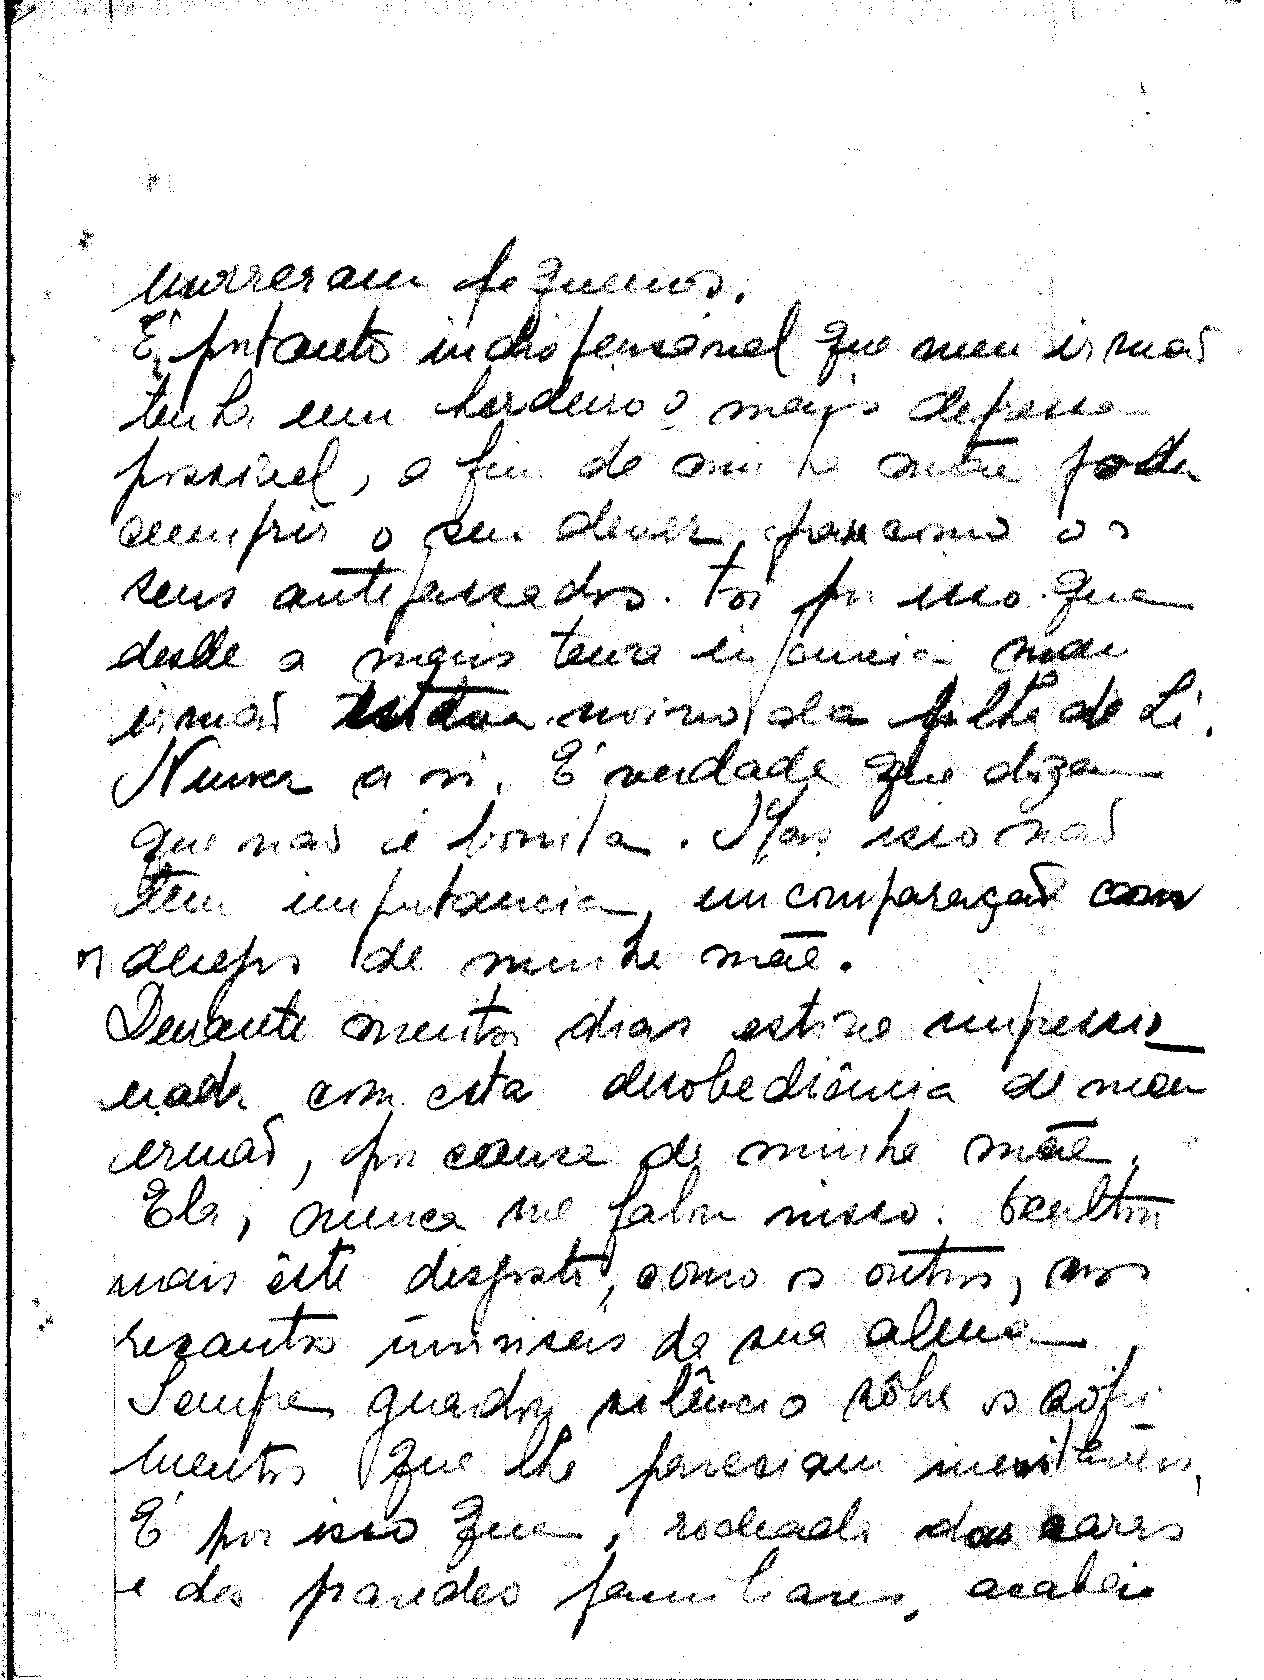 morreram pequenos.
É, portanto indispensável que meu irmão
tenha um herdeiro o mais depressa
possível, a fim de minha mãe poder
cumprir o seu dever, para com os
seus antepassados. Foi por isso que
desde a mais tenra infancia meu
irmão estava noivo da filha de Li.
Nunca a vi. É verdade que dizem
que não é bonita. Mas isso não
tem importancia, em comparação com
os desejos de minha mãe.
Durante muitos dias estive impressio
nada com esta desobediência de meu
irmão, por causa de minha mãe.
Ela, nunca me falou nisso. Ocultou
mais êste desgosto, como os outros, nos
recantos invisiveis de sua alma.
Sempre guardou silêncio sôbre os sofri
mentos que lhe pareciam inevitáveis,
É por isso que, rodeada das caras
e das paredes familiares, acabei